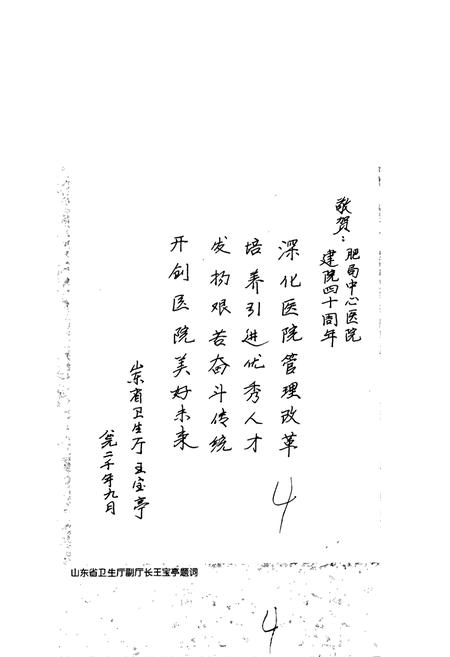 敬贺:
肥局中心医院
建院四十周年
深化医院管理改革
培养引进优秀人才
发扬艰苦奋斗传统
开创医院美好未来
山东省卫生厅王宝亭
二千年九月
4
山东省卫生厅副厅长王宝亭题词
4